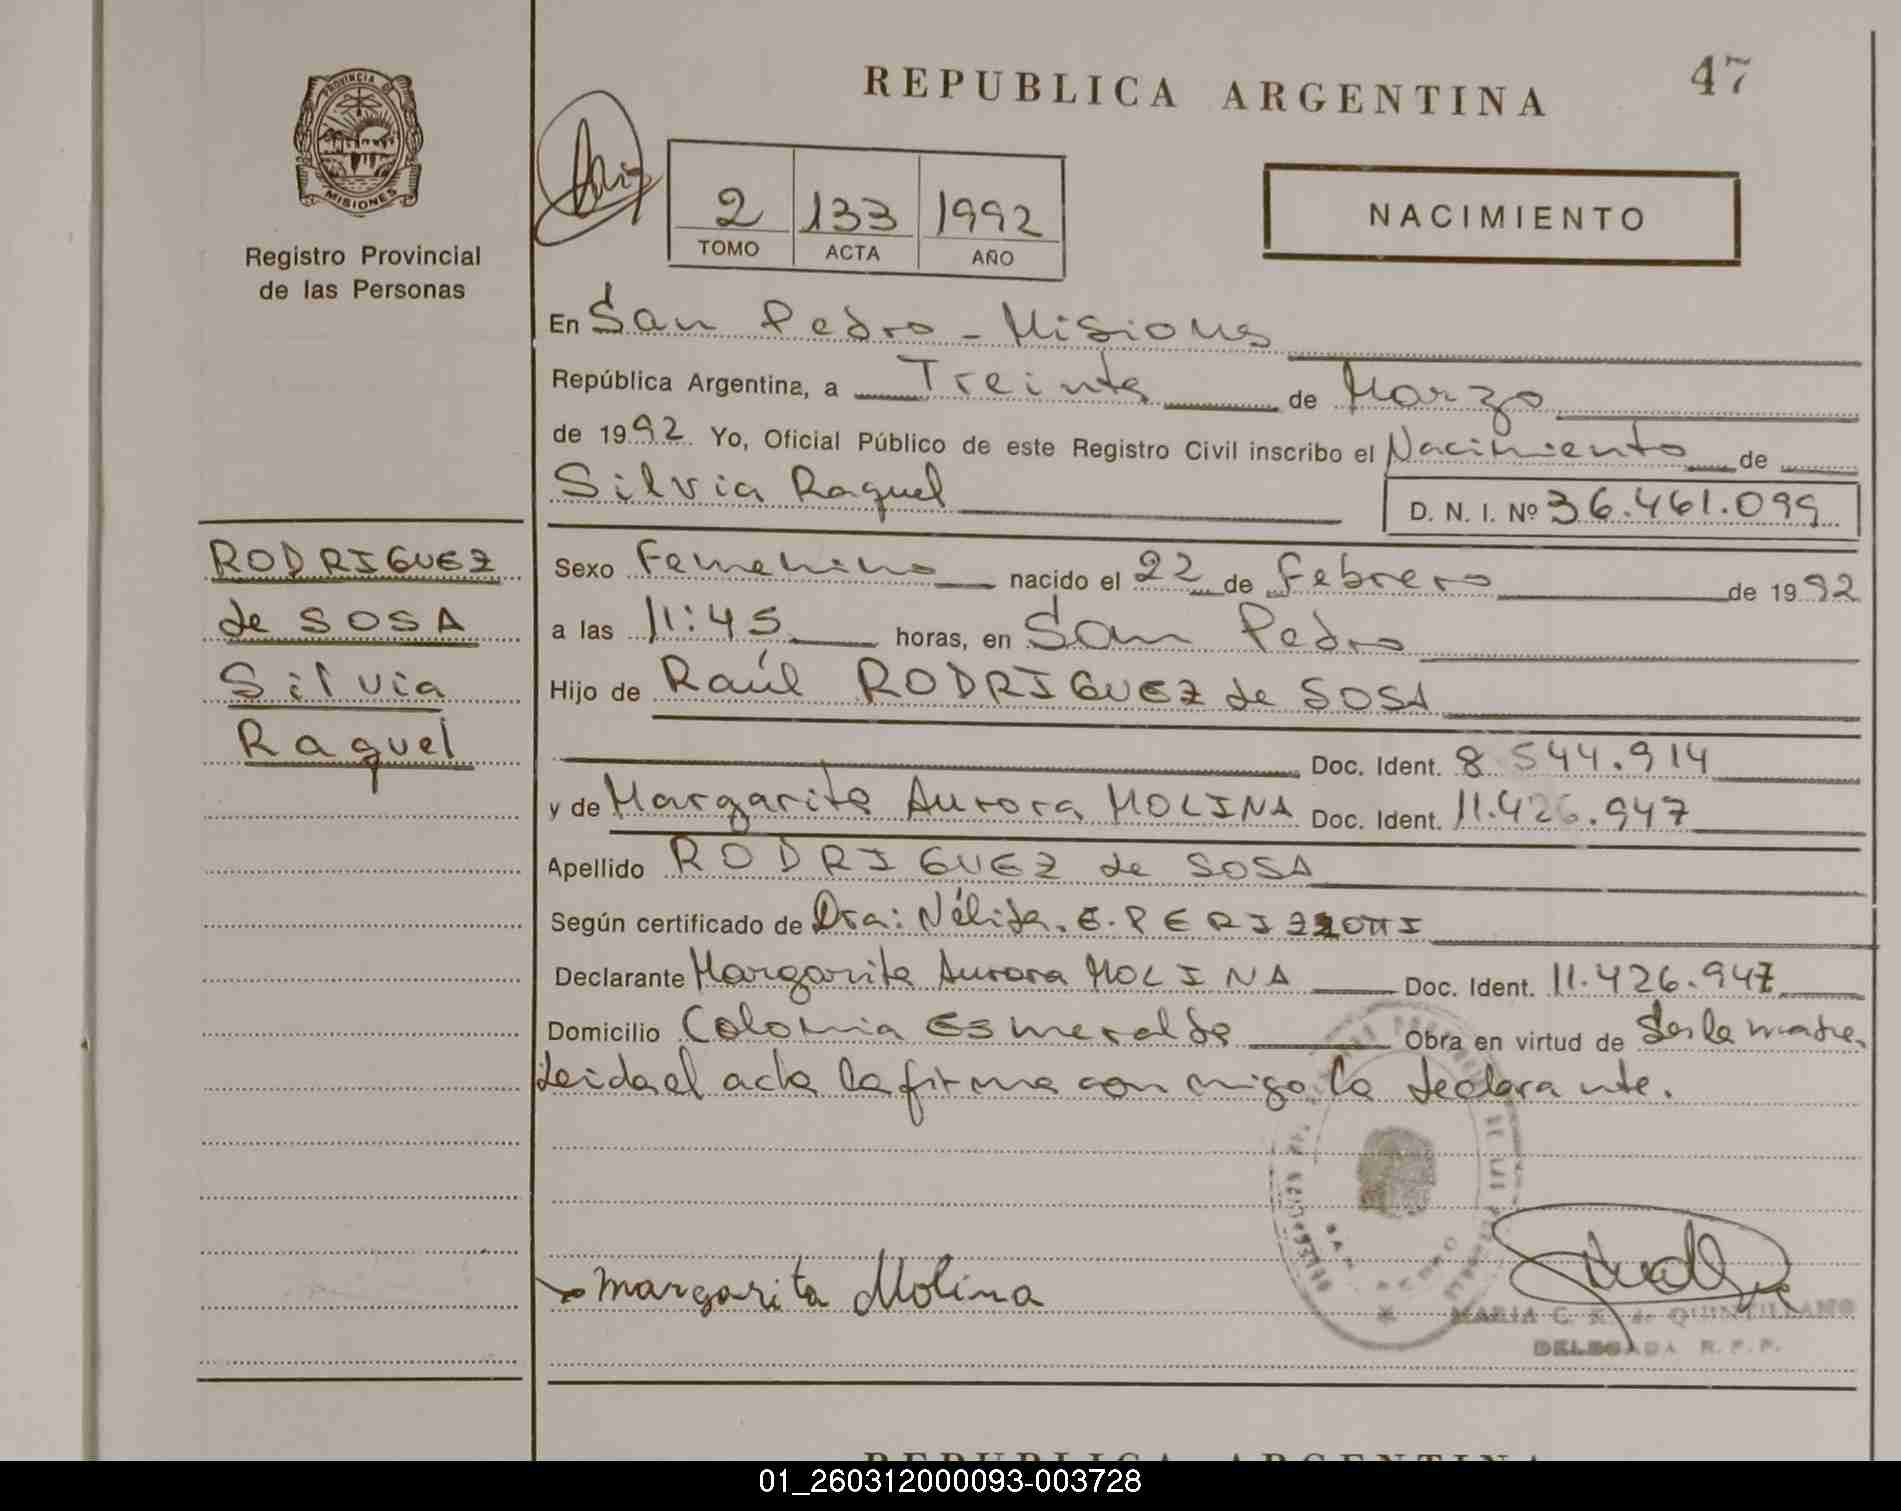 REPUBLICA ARGENTINA
47
PROVINCIA DE
MISIONES
Registro Provincial
de las Personas
2 133 1992
TOMO ACTA AÑO
NACIMIENTO
En San Pedro - Misiones
República Argentina, a Treinta de Marzo
de 1992. Yo, Oficial Público de este Registro Civil inscribo el Nacimiento de
Silvia Raquel
D. N. I. Nº 36.461.099
RODRIGUEZ
de SOSA
Silvia
Raquel
Sexo Femenino nacido el 22 de Febrero de 1992
a las 11:45 horas, en San Pedro
Hijo de Raúl RODRIGUEZ de SOSA
Doc. Ident. 8.544.914
y de Margarita Aurora MOLINA Doc. Ident. 11.426.947
Apellido RODRIGUEZ de SOSA
Según certificado de Dra: Nélida. E. PERIZZOTTI
Declarante Margarita Aurora MOLINA Doc. Ident. 11.426.947
Domicilio Colonia Esmeralda Obra en virtud de ser la madre.
Leida el acta la firma con migo la declarante.
SAN PEDRO
Margarita Molina
MARIA C. K. de QUINTILLANO
DELEGADA R. P. P.
REPUBLICA ARGENTINA
01_260312000093-003728